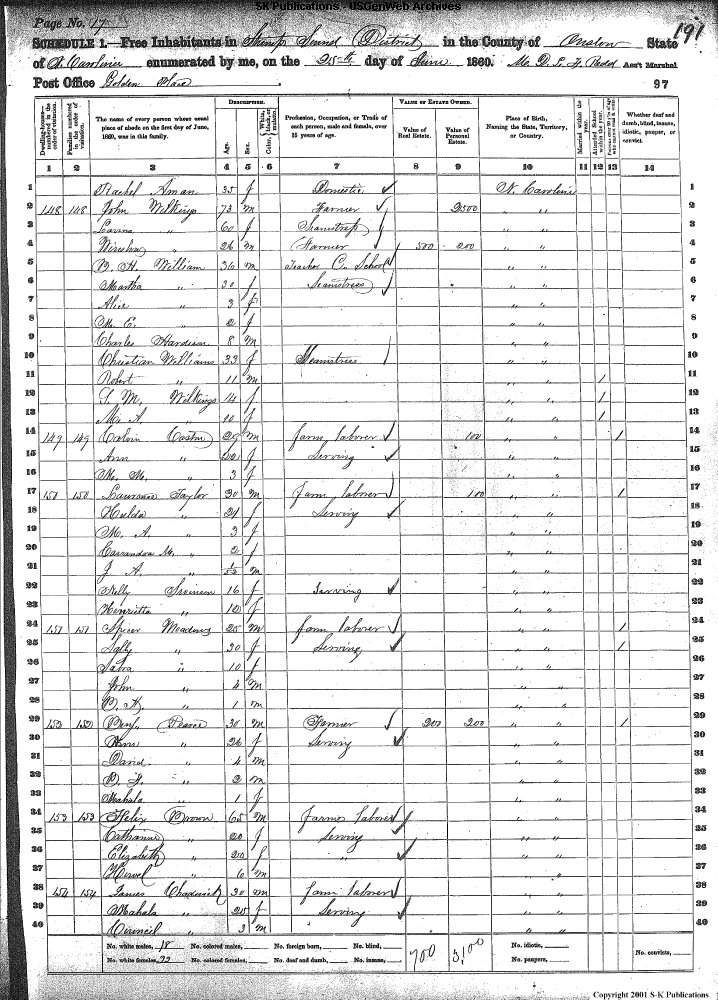 SK Publications - USGenWeb Archives
Page No. 17
191
SCHEDULE 1.—Free Inhabitants in Stump Sound District in the County of Onslow State
of N. Carolina enumerated by me, on the 25th day of June 1860. Ass't Marshal.
Post Office Golden Place
97
DESCRIPTION. VALUE OF ESTATE OWNED.
Dwelling-houses numbered in the order of visitation. Families numbered in the order of visitation. The name of every person whose usual place of abode on the first day of June, 1860, was in this family. Age. Sex. Color, White, black, or mulatto. Profession, Occupation, or Trade of each person, male and female, over 15 years of age. Value of Real Estate. Value of Personal Estate. Place of Birth, Naming the State, Territory, or Country. Married within the year. Attended School within the year. Whether deaf and dumb, blind, insane, idiotic, pauper, or convict.
1 2 3 4 5 6 7 8 9 10 11 12 13 14
1 Rachel Aman 35 f Domestic N. Carolina 1
2 148 148 John Wilkings 73 m Farmer 2500 " " 2
3 " 60 f Seamstress " " 3
4 " 26 m Farmer 500 200 " " 4
5 B. H. William 36 m Teacher C. School " " 5
6 Martha " 30 f Seamstress " " 6
7 Alice " 3 f " " 7
8 M. E. " 2 f " " 8
9 Charles Hardison 8 m " " 9
10 Christian Williams 33 f Seamstress " " 10
11 Robert " 11 m " " 1 11
12 Wilkings 14 f " " 1 12
13 M. A. " 10 f " " 1 13
14 149 149 Calvin 25 m farm laborer 100 " " 1 14
15 Ann " 22 f Serving " " 15
16 M. M. " 3 f " " 16
17 150 150 Lawrence Taylor 30 m farm laborer 100 " " 1 17
18 Hulda " 21 f Serving " " 18
19 M. A. " 3 f " " 19
20 Cassandra M. " 2 f " " 20
21 J. A. " m " " 21
22 Nelly 16 f Serving " " 22
23 Henrietta " 10 f " " 23
24 151 151 Spicer Meadows 25 m farm laborer " " 1 24
25 Sally " 30 f Serving " " 1 25
26 Sabra " 10 f " " 26
27 John " 4 m " " 27
28 " 1 m " " 28
29 152 152 Benj. Pearce 30 m Farmer 200 200 " " 1 29
30 Ann " 26 f Serving " " 30
31 David " 4 m " " 31
32 " 2 m " " 32
33 Mahala " 1 f " " 33
34 153 153 Felix Brown 65 m farm laborer " " 34
35 Catharine " 20 f Serving " " 35
36 Elizabeth " 20 f " " " 36
37 " 6 m " " 37
38 154 154 James Chadwick 30 m farm laborer " " 38
39 Mahala " 25 f Serving " " 39
40 Council " 3 m " " 40
No. white males, 18 No. colored males, No. foreign born, No. blind, 700 3,100 No. idiotic, No. convicts,
No. white females, 22 No. colored females, No. deaf and dumb, No. insane, No. paupers,
Copyright 2001 S-K Publications